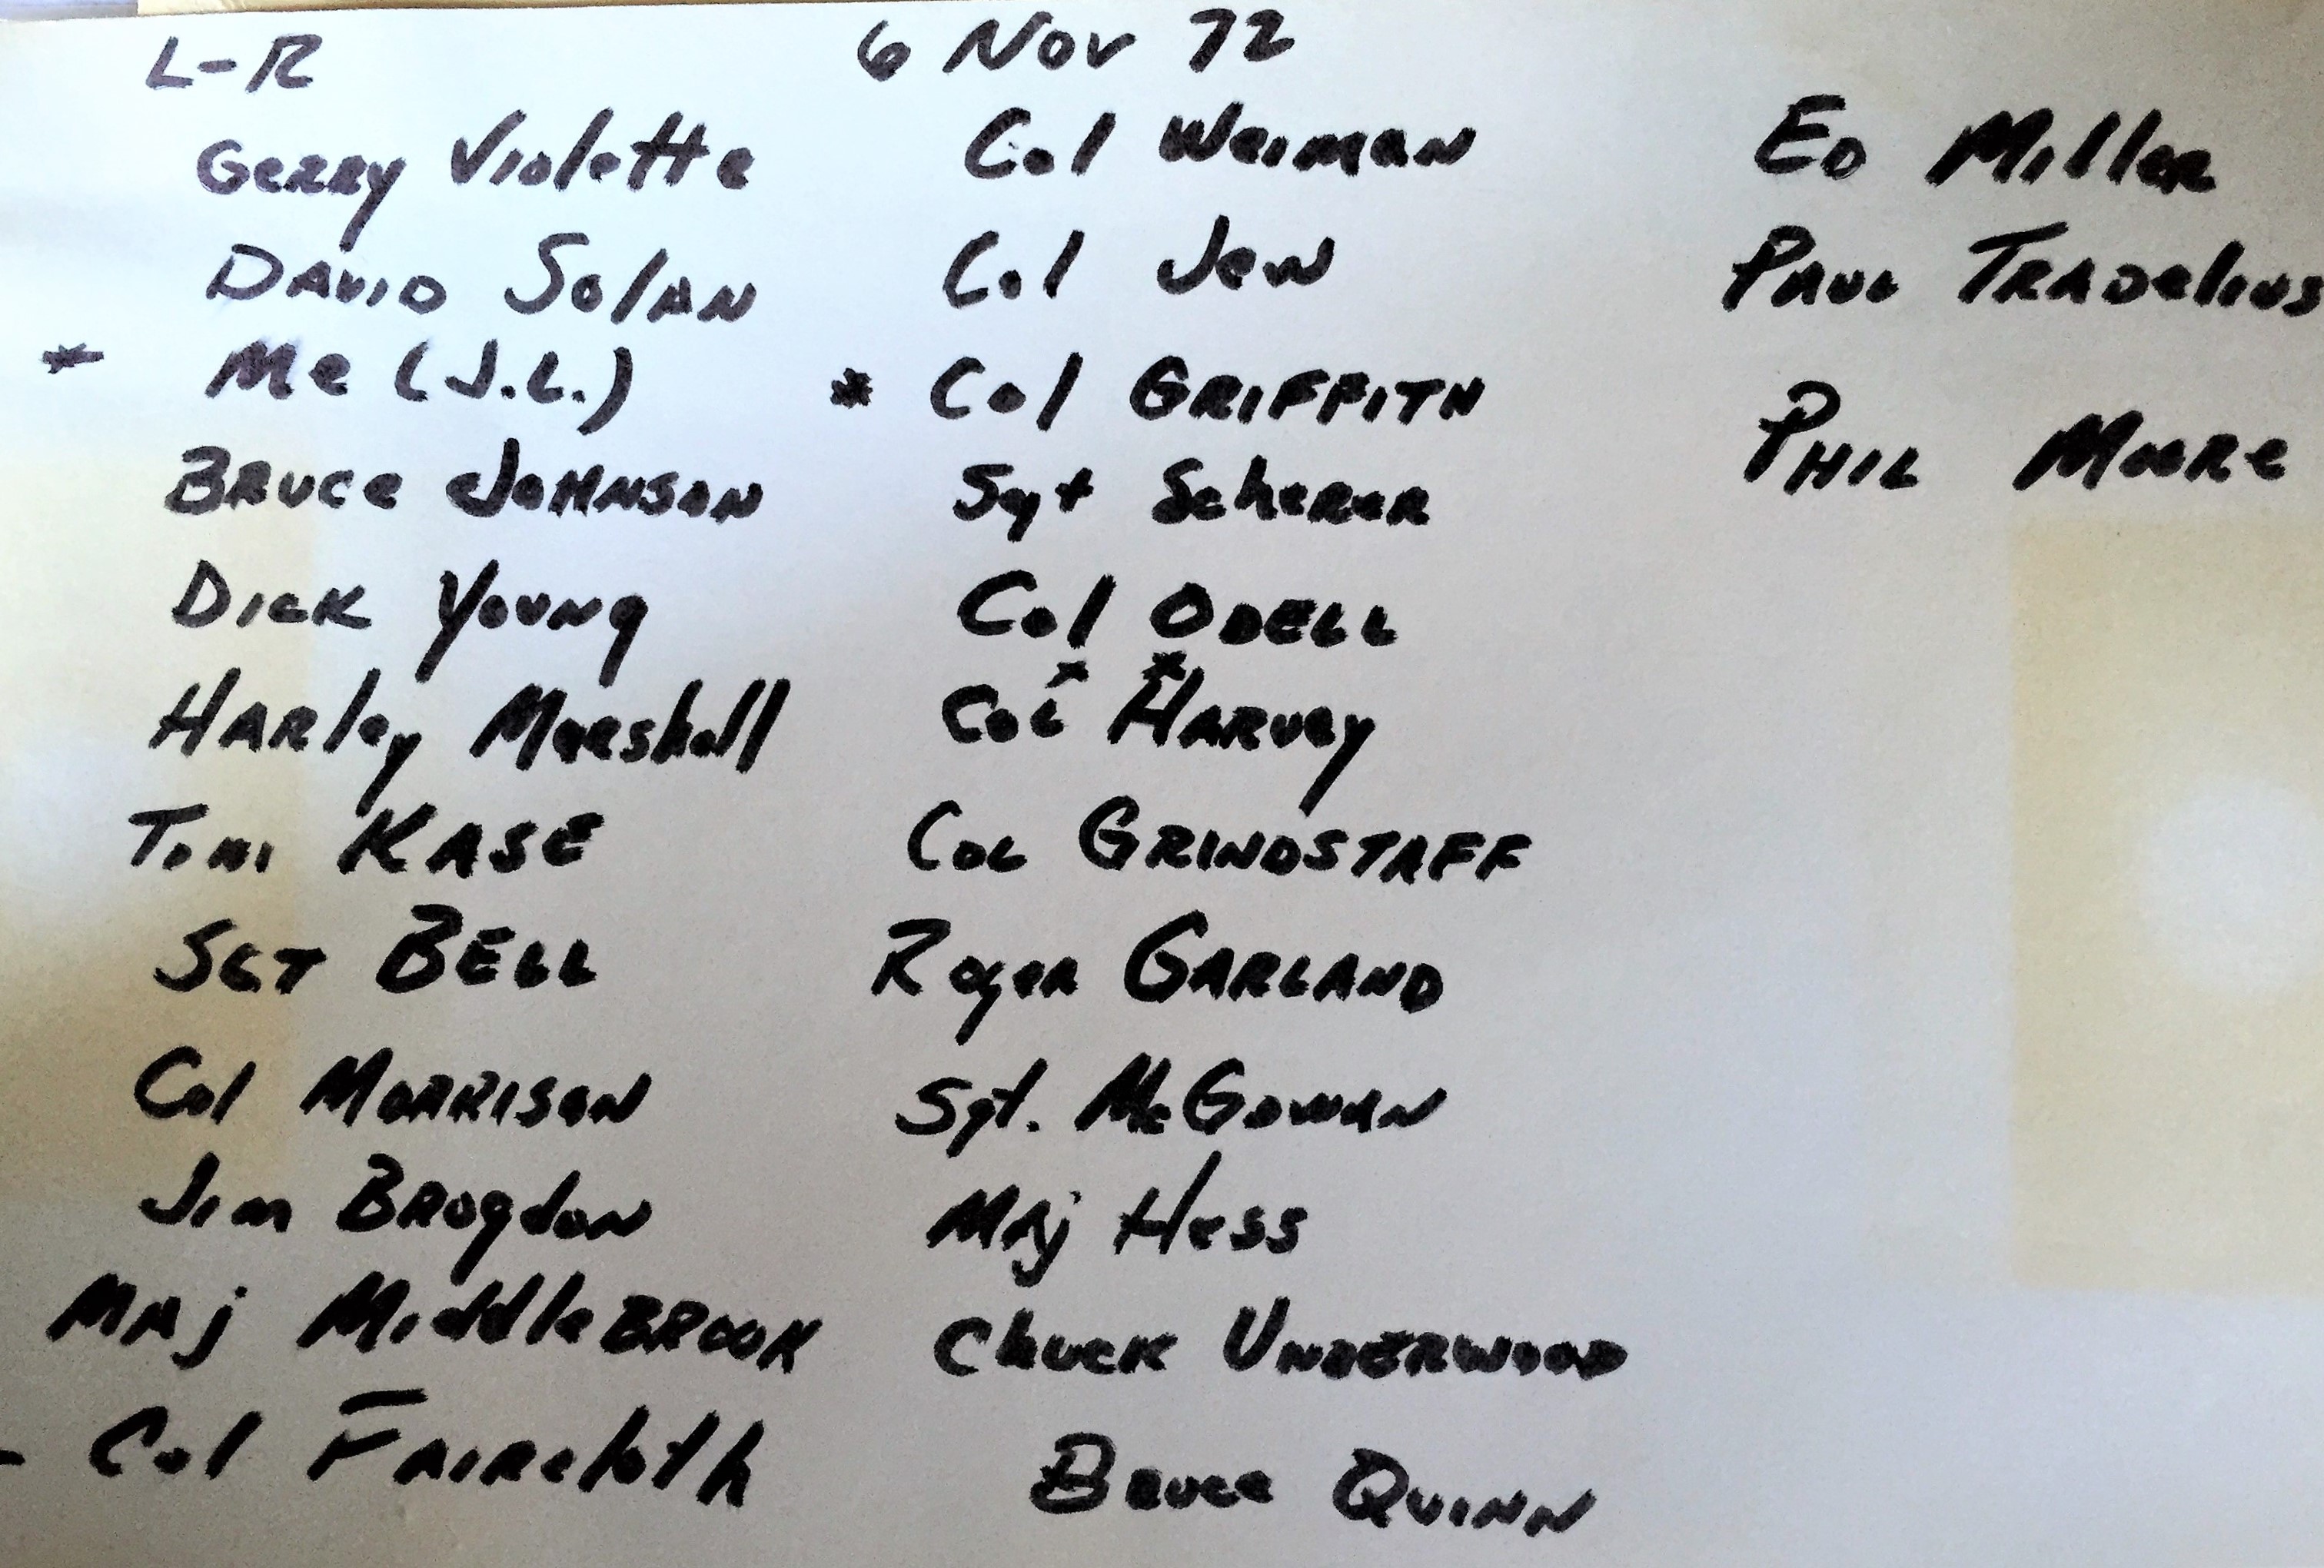 L-R
6 Nov 72
Gerry Violette
David Solan
* Me (J.L.)
Bruce Johnson
Dick Young
Harley Marshall
Tom KASE
SGT BELL
Col Morrison
Jim Brogdon
Maj MiddleBROOK
- Col Faircloth
Col Weiman
Col Jew
* Col GRIFFITH
Sgt Scherer
Col ODELL
* *
Col Harvey
Col GRINDSTAFF
Roger GARLAND
Sgt. McGowan
Maj Hess
Chuck Underwood
Bruce Quinn
Ed Miller
Paul Tradelius
Phil Moore